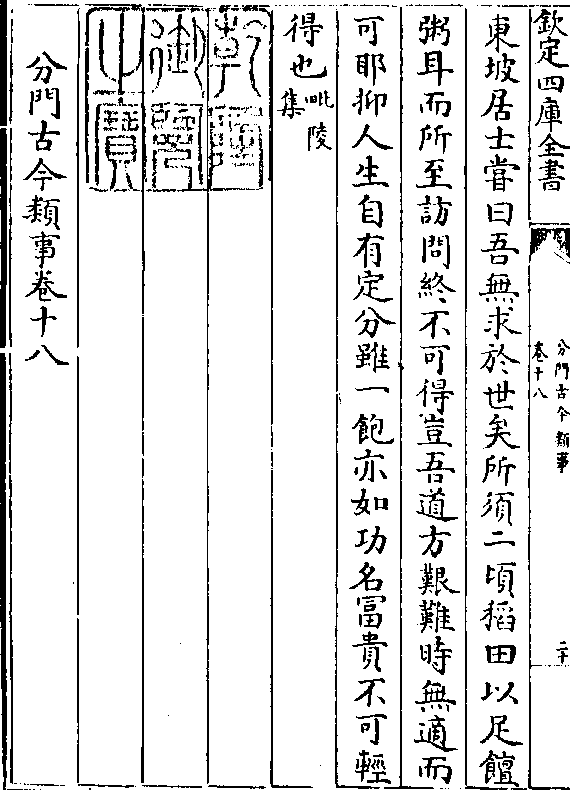 欽定四庫全書
分門古今類事
卷十八
二十
東坡居士嘗曰吾無求於世矣所須二頃稻田以足饘
粥耳而所至訪問終不可得豈吾道方艱難時無適而
可耶抑人生自有定分雖一飽亦如功名富貴不可輕
得也毗陵
集
乾隆
御覽
之寶
分門古今類事卷十八